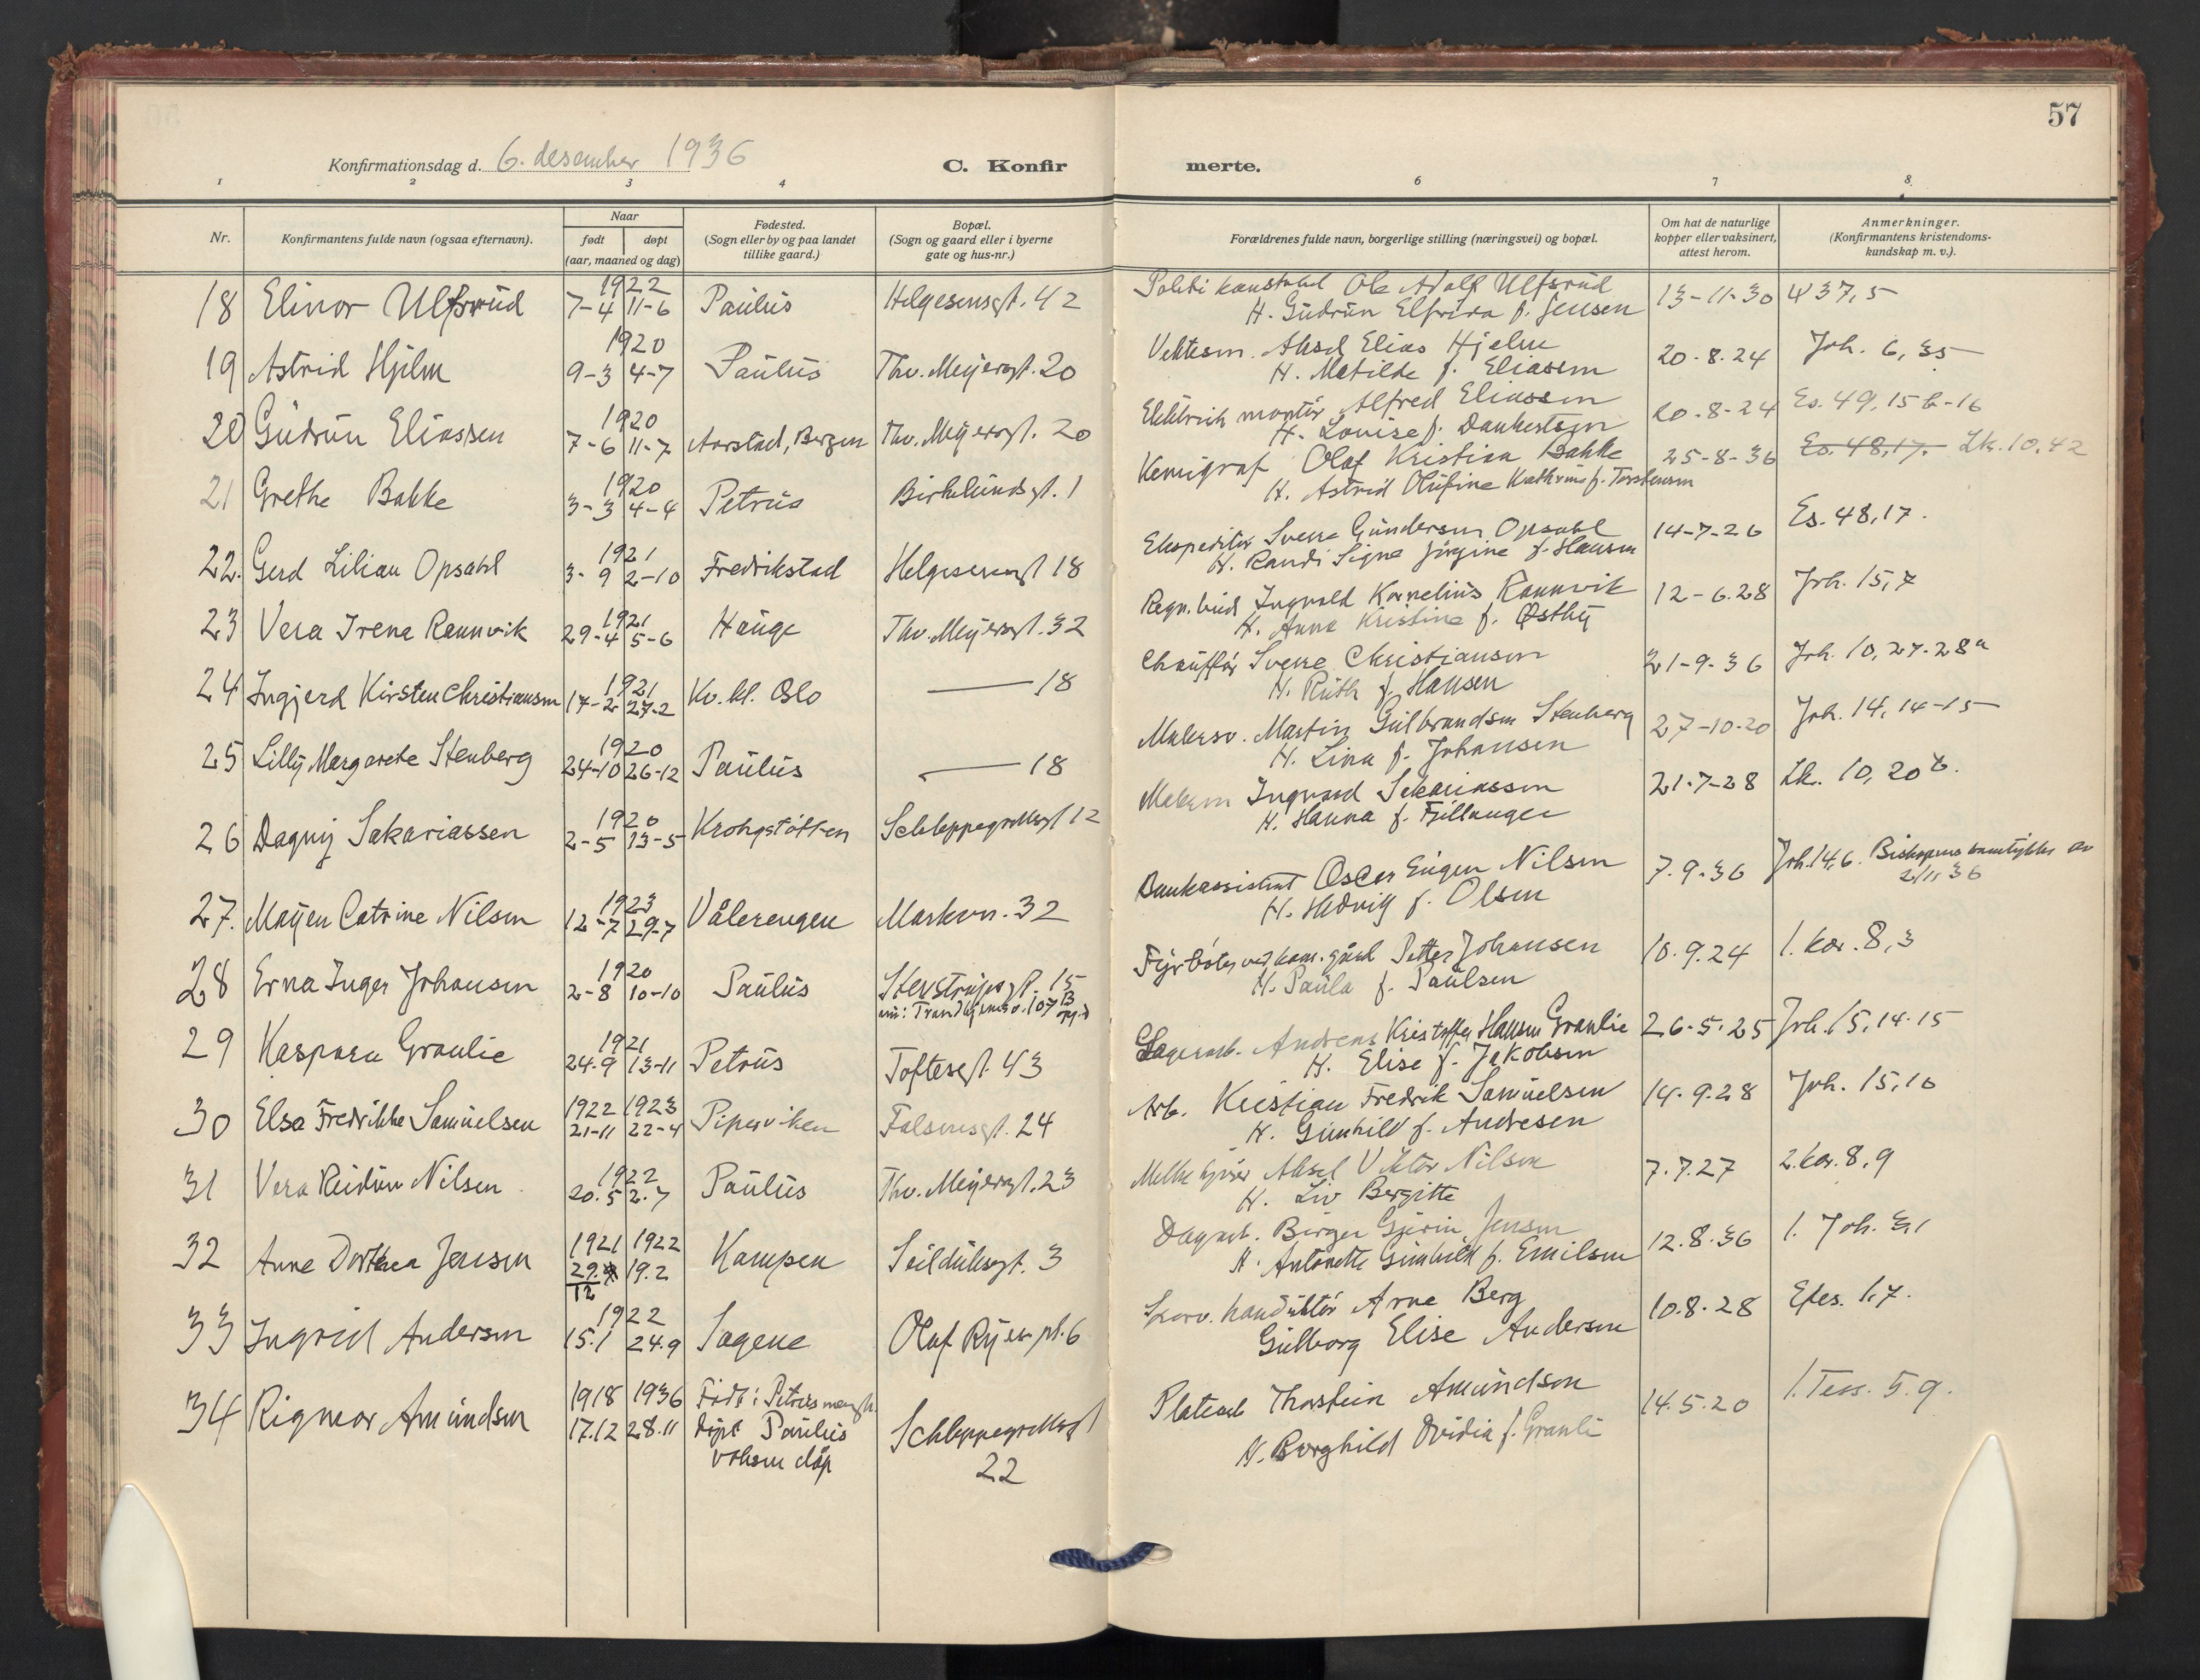 57
Konfirmationsdag d. 6. desember 1936
C. Konfir merte.
1 2 3 4 6 7 8
Nr.
Konfirmantens fulde navn (ogsaa efternavn).
Naar
født døpt
(aar, maaned og dag)
Fødested.
(Sogn eller by og paa landet
tillike gaard.)
Bopæl.
(Sogn og gaard eller i byerne
gate og hus-nr.)
Forældrenes fulde navn, borgerlige stilling (næringsvei) og bopæl.
Om hat de naturlige
kopper eller vaksinert,
attest herom.
Anmerkninger.
(Konfirmantens kristendoms-
kundskap m. v.).
18 Elinor Ulfsrud 1922 7-4 11-6 Paulus Helgesensgt. 42
Politikonstabel Ole Adolf Ulfsrud
H. Gudrun Elfrida f. Jensen 13-11-30 37,5
19 Astrid Hjelm 1920 9-3 4-7 Paulus Thv. Meyersgt. 20
Vektesm. Aksel Elias Hjelm
H. Matilde f. Eliassen 20-8-24 Joh. 6, 35
20 Gudrun Eliassen 1920 7-6 11-7 Aarstad, Bergen Thv. Meyersgt. 20
Elektrisk montør Alfred Eliassen
H. Louise f. Dankertsen 20-8-24 Es. 49, 15b-16
21 Grethe Bakke 1920 3-3 4-4 Petrus Birkelundsgt. 1
Kemigraf Olaf Kristian Bakke
H. Astrid Olufine Kathrine f. Torstensen 25-8-36 Es. 48,17. Lk. 10,42
22. Gerd Lilian Opsahl 1921 3-9 2-10 Fredrikstad Helgesensgt 18
Ekspeditør Sverre Gundersen Opsahl
H. Randi Signe Jørgine f. Hansen 14-7-26 Es. 48,17.
23 Vera Irene Rannvik 1921 29-4 5-6 Hauge Thv. Meyersgt. 32
Regn. bud Ingvald Kornelius Rannvik
H. Anna Kristine f. Østby 12-6.28 Joh. 15,7
24 Ingjerd Kirsten Christiansen 1921 17-2 27-2 Kv. kl. Oslo — 18
Chauffør Sverre Christiansen
H. Ruth f. Hansen 21-9-36 Joh. 10, 27-28a
25 Lilly Margarete Stenberg 1920 24-10 26-12 Paulus — 18
Malersv. Martin Gulbrandsen Stenberg
H. Lina f. Johansen 27-10-20 Joh. 14, 14-15
26 Dagny Sakariassen 1920 2-5 13-5 Krohgstøtten Schleppegrellsgt 12
Ingvard Sakariassen
H. Hanna f. Fjellanger 21-7-28 Lk. 10, 20b.
27. Mayen Catrine Nilsen 1923 12-7 29-7 Vålerengen Markvn. 32
Bankassistent Oscar Eugen Nilsen
H. Hedvig f. Olsen 7.9.36 Joh. 14,6. Biskopens samtykke av
2/11 36
28 Erna Inger Johansen 1920 2-8 10-10 Paulus Steenstrupsgt. 15
nu: Trondhjemsv. 107 B opp. 3
Fyrbøter ved kom. gård Petter Johansen
H. Paula f. Paulsen 10.9.24 1. kor. 8,3
29 Kaspara Graulie 1921 24.9 13-11 Petrus Toftesgt. 43
Lagerarb. Andreas Kristoffer Hansen Graulie
H. Elise f. Jakobsen 26-5-25 Joh. 15, 14-15
30 Elsa Fredrikke Samuelsen 1922 1923 21-11 22-4 Piperviken Falsensgt. 24
Arb. Kristian Fredrik Samuelsen
H. Gunhild f. Andresen 14.9.28 Joh. 15,10
31 Vera Reidun Nilsen 1922 20.5 2.7 Paulus Thv. Meyersgt. 23
Melkekjører Aksel Viktor Nilsen
H. Liv Bergitte 7.7.27 2. kor. 8,9
32 Anne Dorthea Jensen 1921 1922 29. 12 19.2 Kampen Seilduksgt. 3
Dagarb. Birger Gjerin Jensen
H. Antonette Gunhild f. Emilsen 12.8.36 1. Joh. 3,1
33 Ingrid Andersen 1922 15.1 24.9 Sagene Olaf Ryes pl. 6
Sporv. konduktør Arne Berg
Gulborg Elise Andersen 10.8.28 Efes. 1,7.
34 Rigmor Amundsen 1918 1936 17.12 28.11 Født i Petrus mengh.
døpt Paulus
voksen dåp
Schleppegrellsgt
22
Platearb Thorstein Amundsen
H. Borghild Ovidia f. Grauli 14.5.20 1. Tess. 5.9.